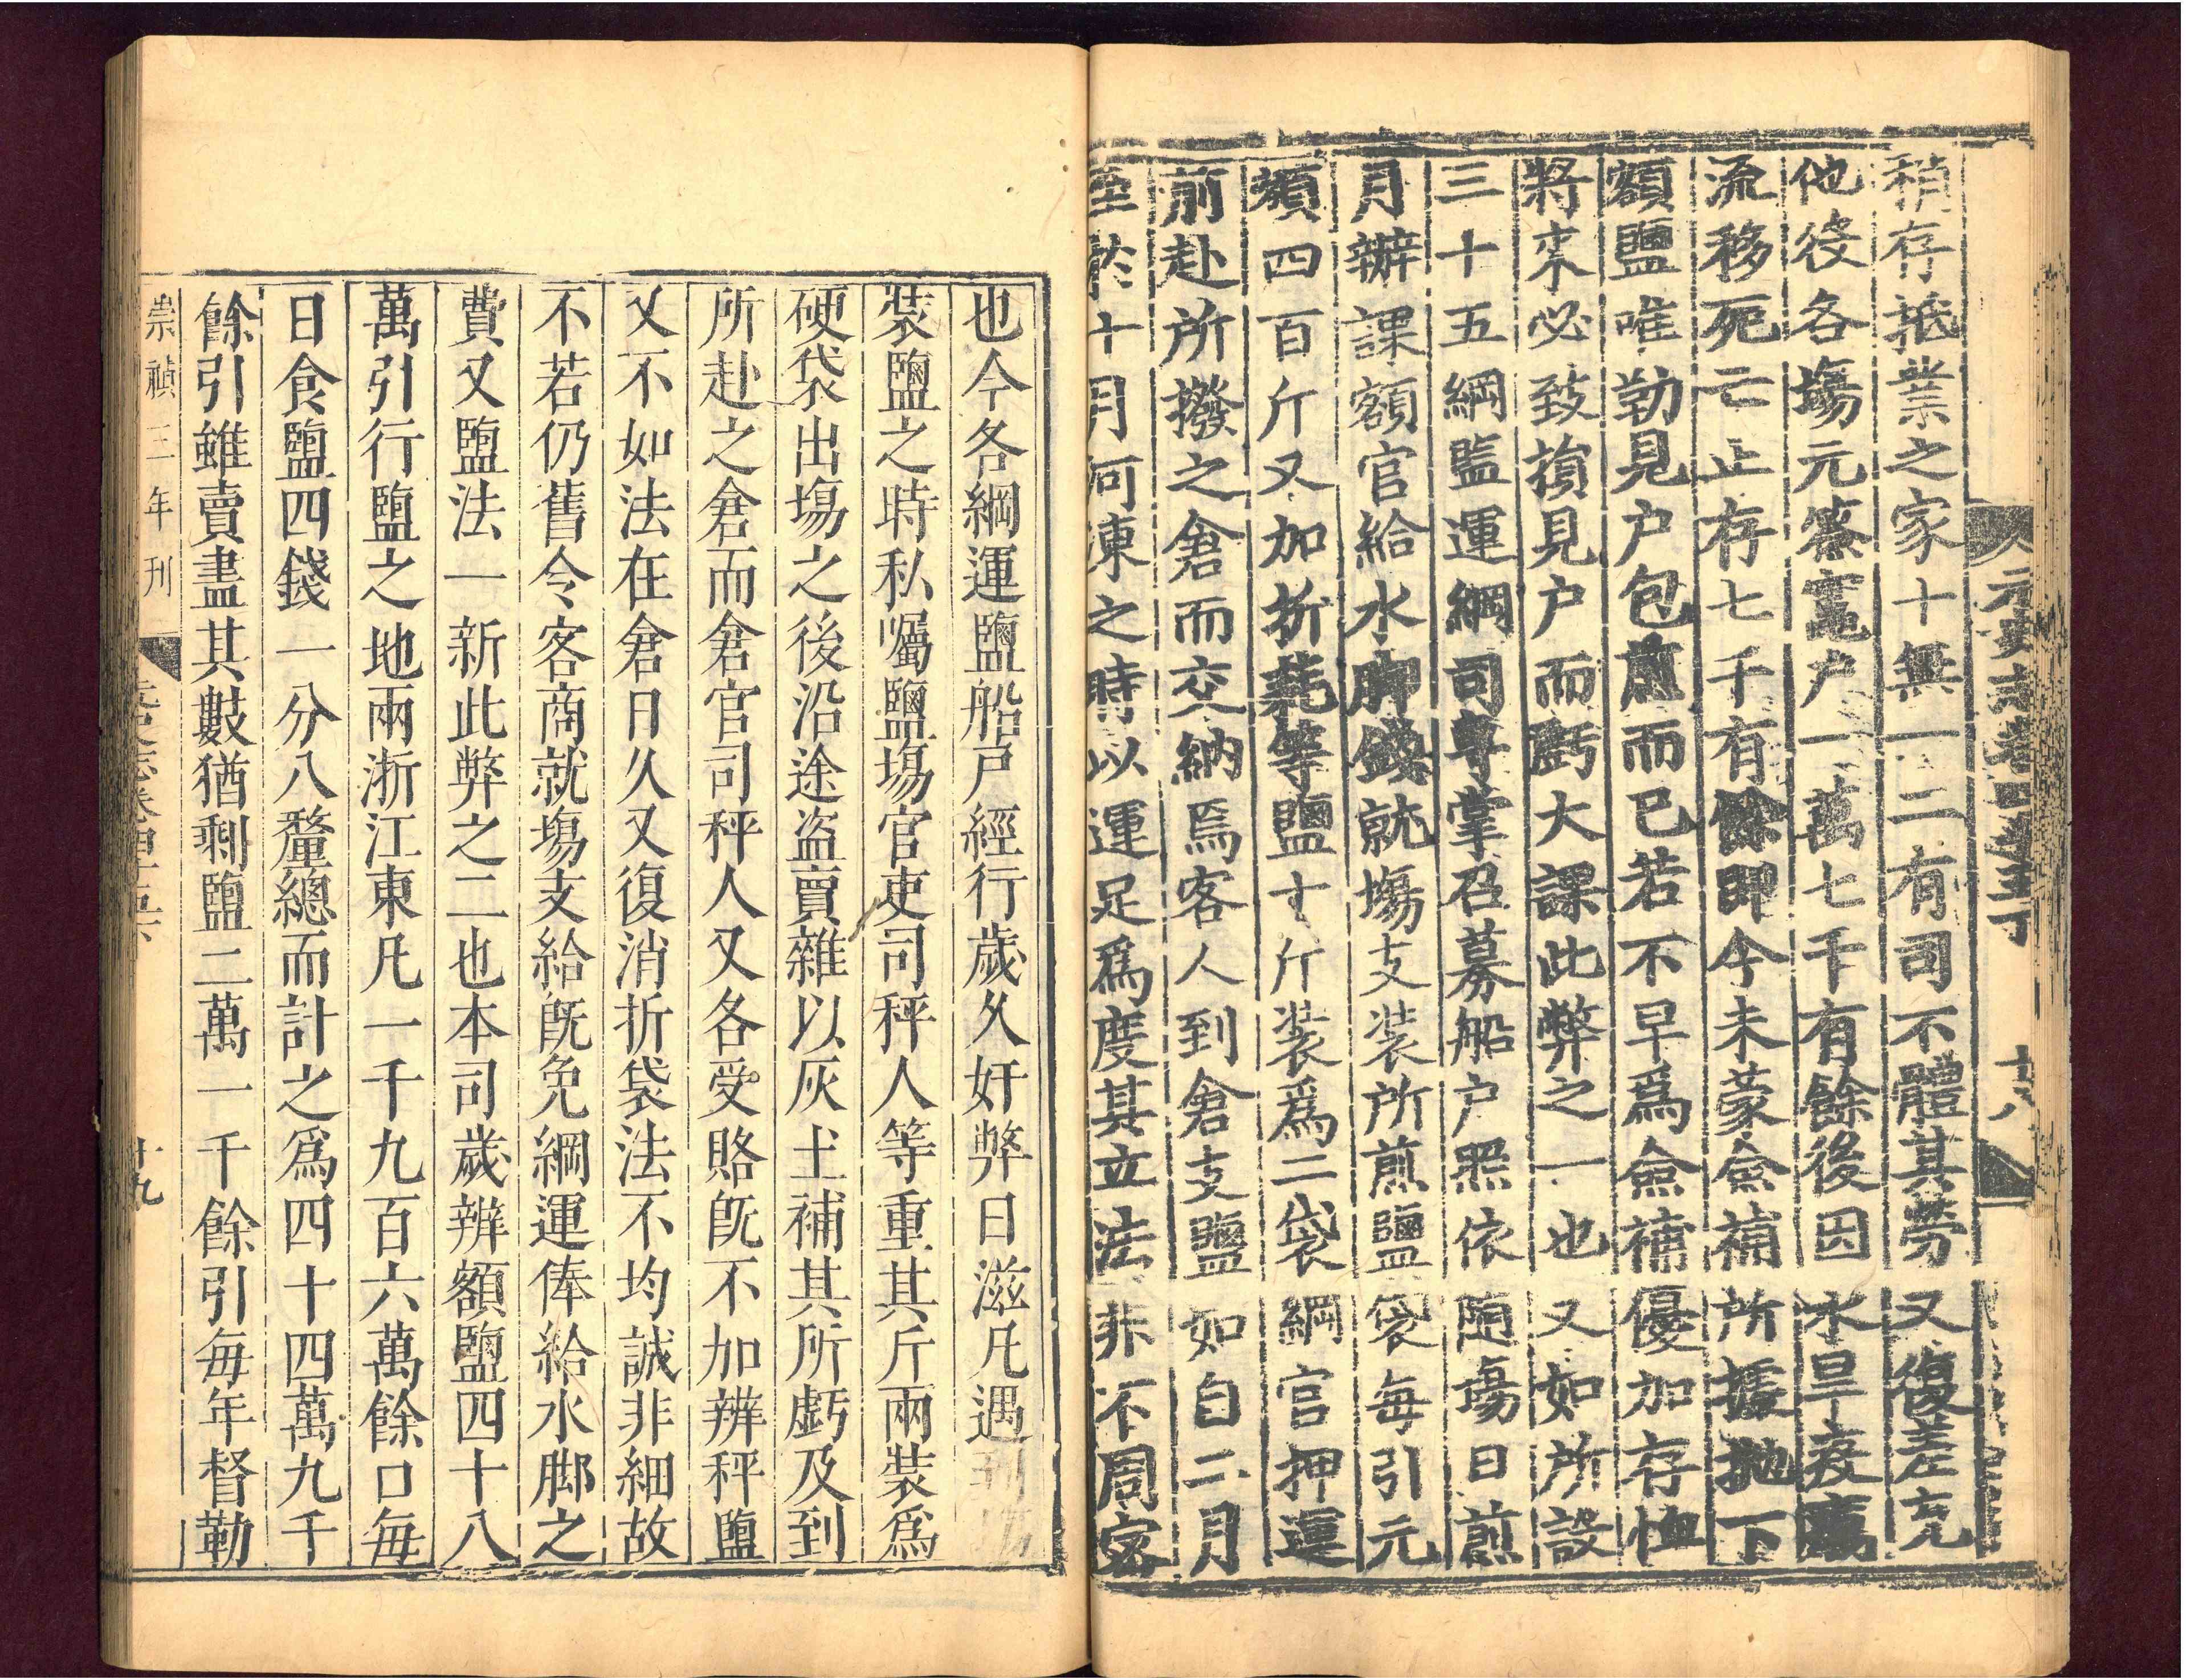 元史志卷四十五下
十八
稍存抵業之家十無一二有司不體其勞又復差充
他役各場元簽竈戶一萬七千有餘後因水旱疫癘
流移死亡止存七千有餘即今未蒙僉補所據拋下
額鹽唯勒見戶包煎而已若不早爲僉補優加存恤
將來必致損見戶而虧大課此弊之一也又如所設
三十五綱監運綱司專掌召募船戶照依隨場日煎
月辦課額官給水脚錢就場支裝所煎鹽袋每引元
額四百斤又加折耗等鹽十斤裝爲二袋綱官押運
前赴所撥之倉而交納焉客人到倉支鹽如自二月
至於十月河凍之時以運足爲度其立法非不周密
也今各綱運鹽船戶經行歲久奸弊日滋凡遇到場
裝鹽之時私囑鹽場官吏司秤人等重其斤兩裝爲
硬袋出場之後沿途盜賣雜以灰土補其所虧及到
所赴之倉而倉官司秤人又各受賂既不加辨秤鹽
又不如法在倉日久又復消折袋法不均誠非細故
不若仍舊令客商就場支給既免綱運俸給水脚之
費又鹽法一新此弊之二也本司歲辦額鹽四十八
萬引行鹽之地兩浙江東凡一千九百六萬餘口每
日食鹽四錢一分八釐總而計之爲四十四萬九千
餘引雖賣盡其數猶剩鹽二萬一千餘引每年督勒
崇禎三年刊
元史志卷四十五下
十九